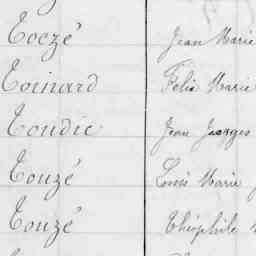 Toczé Jean Marie
Toinard Felix Marie
Toudic Jean Jacques
Touzé Louis Marie
Touzé Théophile